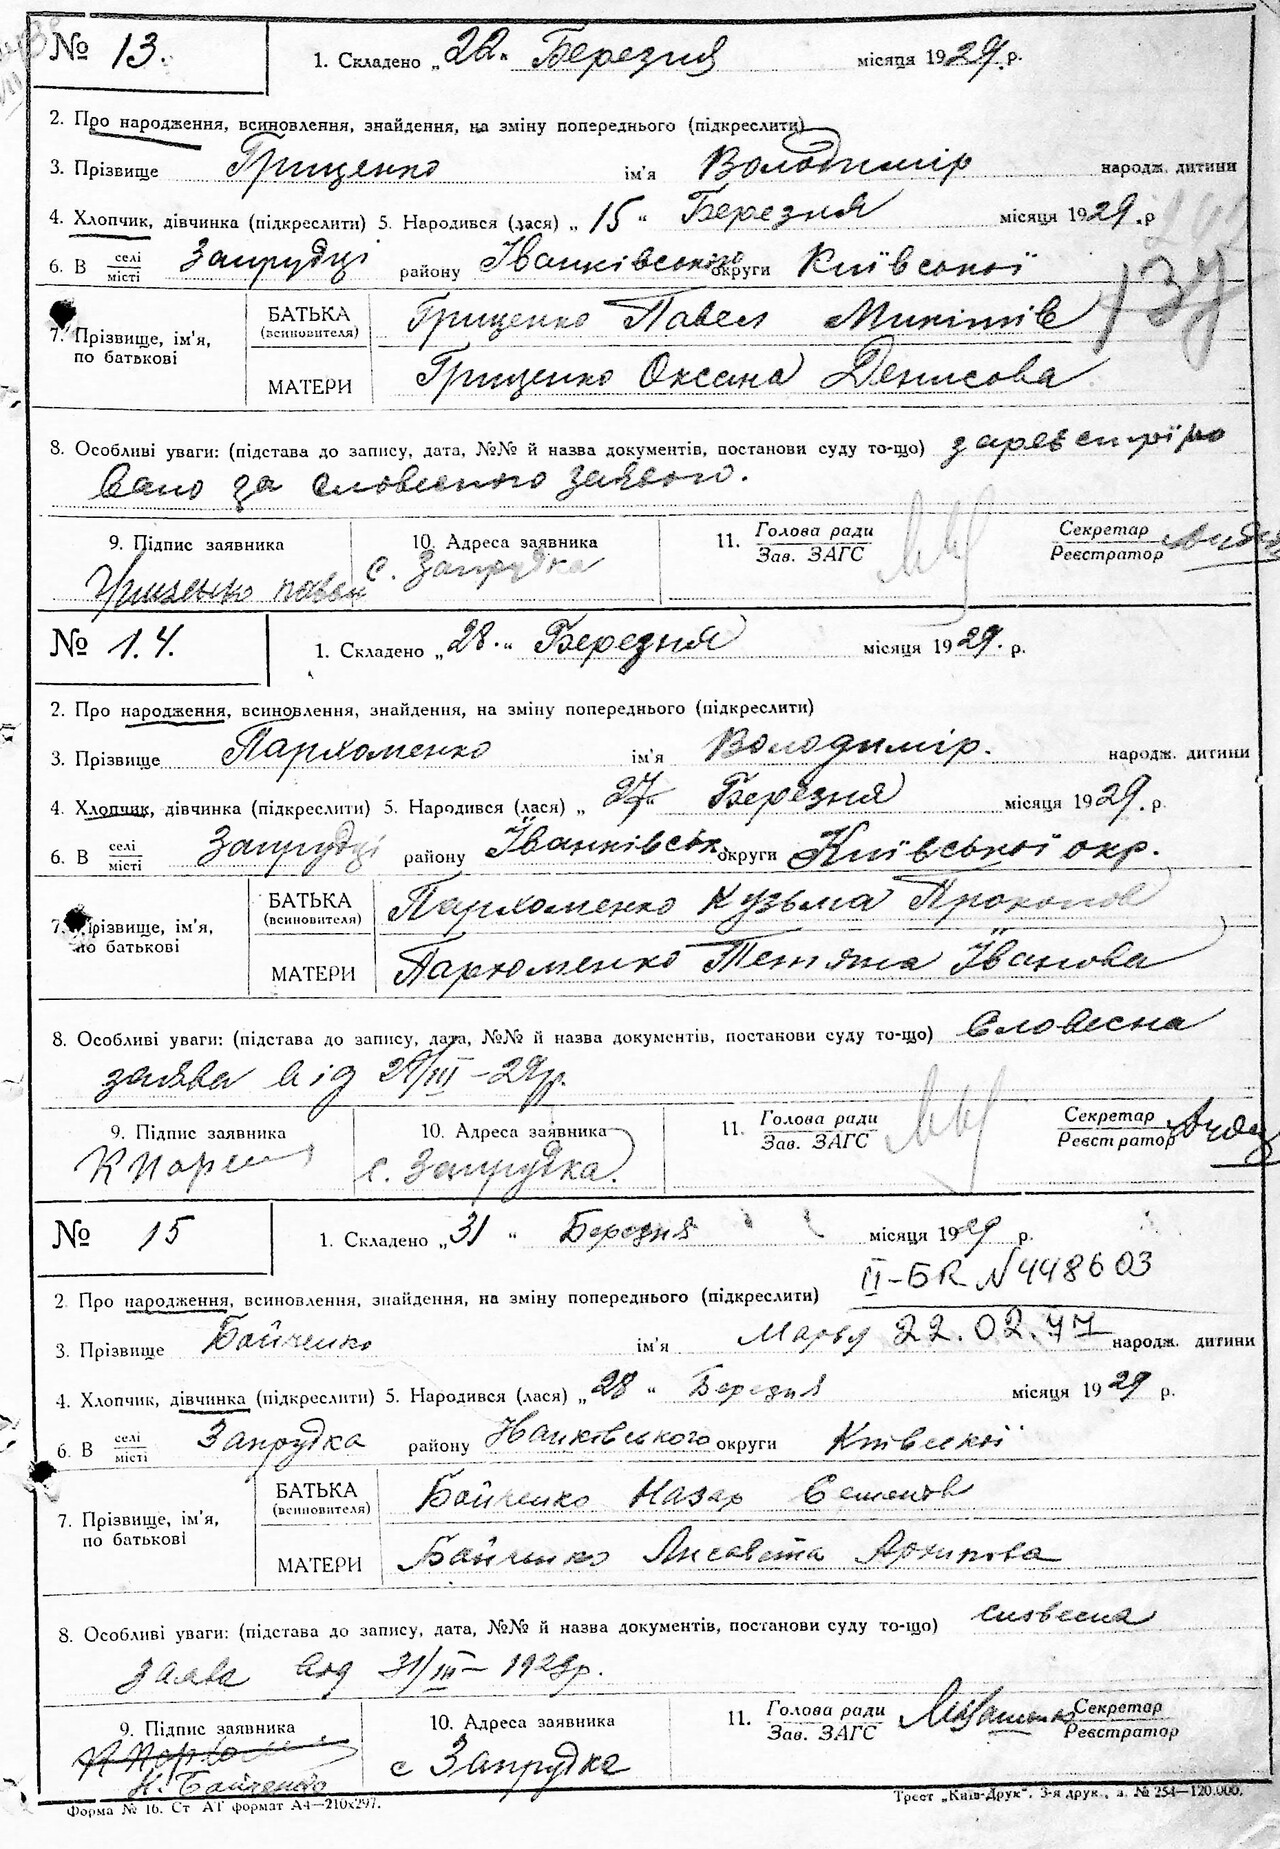 № 13.
1. Складено „22“ Березня місяця 1929. р.
2. Про народження, всиновлення, знайдення, на зміну попереднього (підкреслити)
3. Прізвище Грищенко ім'я Володимір народж. дитини
4. Хлопчик, дівчинка (підкреслити) 5. Народився (лася) „15“ Березня місяця 1929. р
6. В селі місті Запрудці району Іванківського округи Київської
137
7. Прізвище, ім'я, по батькові
БАТЬКА (всиновителя) Грищенко Павел Микитів
МАТЕРИ Грищенко Оксана Денисова
8. Особливі уваги: (підстава до запису, дата, №№ й назва документів, постанови суду то-що) зареєстріро
вано за словесного заявого.
9. Підпис заявника 10. Адреса заявника 11. Голова ради Зав. ЗАГС Секретар Реєстратор
с. Запрудка
№ 14.
1. Складено „28.“ Березня місяця 1929. р.
2. Про народження, всиновлення, знайдення, на зміну попереднього (підкреслити)
3. Прізвище Пархоменко ім'я Володимір. народж. дитини
4. Хлопчик, дівчинка (підкреслити) 5. Народився (лася) „27“ Березня місяця 1929. р.
6. В селі місті Запрудці району Іванківськ. округи Київської окр.
7. Прізвище, ім'я, по батькові
БАТЬКА (всиновителя) Пархоменко Кузьма Прокопов
МАТЕРИ Пархоменко Тетяна Іванова
8. Особливі уваги: (підстава до запису, дата, №№ й назва документів, постанови суду то-що) Словесна
заява від 28/III–29р.
9. Підпис заявника 10. Адреса заявника 11. Голова ради Зав. ЗАГС Секретар Реєстратор
с. Запрудка.
№ 15
1. Складено „31“ Березня місяця 1929 р.
II-БК N448603
2. Про народження, всиновлення, знайдення, на зміну попереднього (підкреслити)
3. Прізвище Бойченко ім'я 22.02.77 народж. дитини
4. Хлопчик, дівчинка (підкреслити) 5. Народився (лася) „28“ Березня місяця 1929 р.
6. В селі місті Запрудка району Іванківського округи Київської
7. Прізвище, ім'я, по батькові
БАТЬКА (всиновителя) Бойченко Назар Семенов
МАТЕРИ Бойченко Лисавета Архипова
8. Особливі уваги: (підстава до запису, дата, №№ й назва документів, постанови суду то-що) словесна
заява від 31/III–1929р.
9. Підпис заявника 10. Адреса заявника 11. Голова ради Зав. ЗАГС Секретар Реєстратор
Н. Бойченко с Запрудка
Форма № 16. Ст АГ формат А4—210х297. Трест „Київ-Друк“. 3-я друк., з. № 254—120.000.